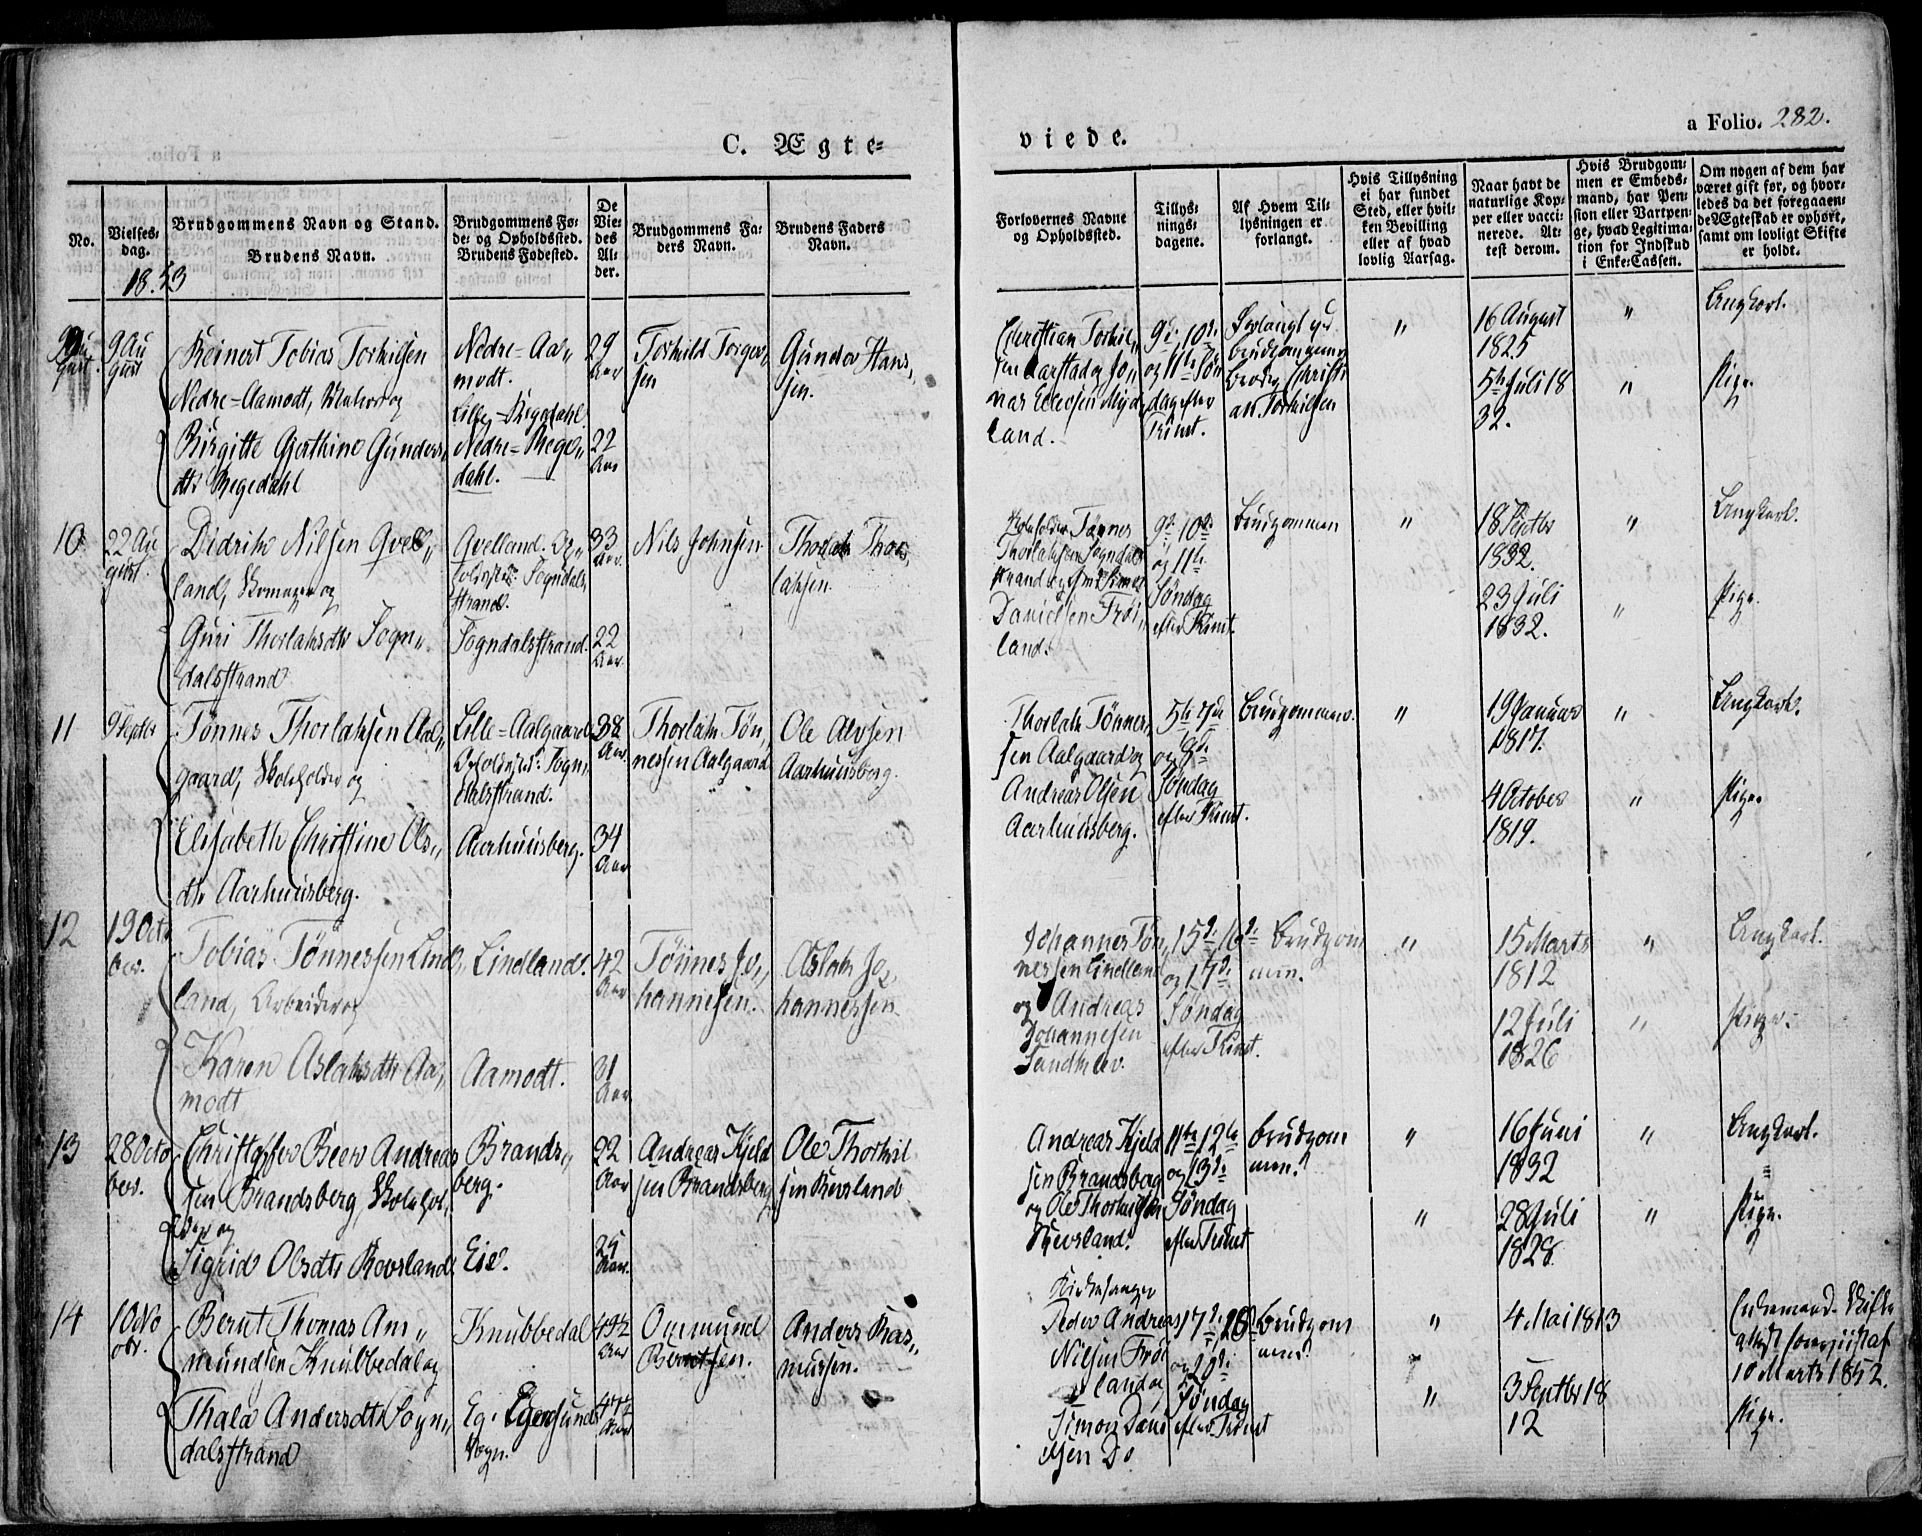 a Folio. 282.
C. Ægte=
viede.
No.
Vielses-
dag.
1853
Brudgommens Navn og Stand.
Brudens Navn.
Brudgommens Fø-
de- og Opholdssted.
Brudens Fødested.
De
Vie-
des
Al-
der.
Brudgommens Fa-
ders Navn.
Brudens Faders
Navn.
Forlovernes Navne
og Opholdssted.
Tillys-
nings-
dagene.
Af Hvem Til-
lysningen er
forlangt.
Hvis Tillysning
ei har fundet
Sted, eller hvil-
ken Bevilling
eller af hvad
lovlig Aarsag.
Naar havt de
naturlige Kop-
per eller vacci-
nerede. At-
test derom.
Hvis Brudgom-
men er Embeds-
mand, har Pen-
sion eller Vartpen-
ge, hvad Legitima-
tion for Indskud
i Enke-Cassen.
Om nogen af dem har
været gift før, og hvor-
ledes da det foregaaen-
de Ægteskab er ophørt,
samt om lovligt Skifte
er holdt.
9 Au
gust
Reinert Tobias Torkilsen
Nedre=Aamodt, Matros og
Birgitte Gurthine Gunders„
dtr Regedahl
Nedre=Aa„
modt.
Lille=Regedahl.
Nedre=Rege„
dahl.
29
Aar
22
Aar
Torkild Torger„
sen
Gunder Hans„
sen.
Christian Torkil„
sen Aarstad og Jo„
nas Eilertsen Myd
land.
9de, 10de
og 11te Søn
dag efter
Trinit.
Forlangt ved
Brudgommens
Broder Christi
an Torkilsen
"
16 August
1825
5te Juli 18
32.
"
"
Ungkarl.
Pige.
10.
22 Au
gust.
Didrik Nilsen Qvel„
land, Skomager og
Guri Thorlaksdtr Sogn„
dalsstrand
Qvelland. Op„
holdsted: Sogndals
strand.
Sogndalsstrand.
33
Aar.
22
Aar.
Nils Johnsen
Thorlak Thor„
laksen.
Skoleholder Tønnes
Thorlaksen Sogndals
strand og Simon
Danielsen Frøi„
land.
9de 10de
og 11te
Søndag
efter Trinit.
Brudgommen
"
18 Septbr
1832.
23 Juli
1832.
"
"
Ungkarl.
Pige.
11
9 Septbr
Tønnes Thorlaksen Aal„
gaard, Skoleholder og
Elisabeth Christine Ols„
dtr Aarhuusberg.
Lille=Aalgaard
Opholdssted: Sogn„
dalsstrand.
Aarhuusberg.
38
Aar
34
Aar
Thorlak Tøn„
nessen Aalgaard
Ole Alvsen
Aarhuusberg.
Thorlak Tønnes„
sen Aalgaard og
Andreas Olsen
Aarhuusberg.
Søndag
efter Trinit.
Brudgommen.
"
19 Januar
1817.
4 October
1819.
"
"
Ungkarl.
Pige.
12
19 Octo
ber.
Tobias Tønnessen Lind„
land, Arbeider og
Karen Aslaksdtr Aa„
modt
Lindland.
Aamodt.
42
Aar
31
Aar
Tønnes Jo„
hannesen.
Aslak Jo„
hannessen
Johannes Tøn„
nessen Lindland
og Andreas
Johannesen
Sandklev.
15de 16de
og 17de
Søndag
efter Trinit.
Brudgom
men.
"
15 Marts
1812
12 Juli
1826
"
"
Ungkarl.
Pige.
13
28 Octo
ber.
Christopher Beer Andreas
sen Brandsberg, Skolehol„
der og
Sigrid Olsdtr Revsland
Brands„
berg.
Eie.
22
Aar
25
Aar.
Andreas Kjeld
sen Brandsberg
Ole Thorkil
sen Revsland
Andreas Kjeld
sen Brandsberg
og Ole Thorkildsen
Revsland.
11te 12te
og 13de
Søndag
efter Trinit
Brudgom
men.
"
"
16 Juni
1832
28 Juli
1828.
"
"
Ungkarl.
"
Pige.
14
10 No
vbr.
Bernt Thomas Am„
mundsen Knubbedal og
Thala Andersdtr Sogn„
dalsstrand
Knubbedal
Eg. Egersunds
Sogn.
Aar
Aar
Ommund
Berntsen.
Anders Ras„
mussen.
Kirkesanger
Peder Andreas
Nilsen Frøi
land og
Simon Dani
elsen Do
Søndag
efter Trinit
Brudgom
men.
"
"
4 Mai 1813
3 Septbr 18
12
Enkemand. Skifte
10 Marts 1852.
Pige.